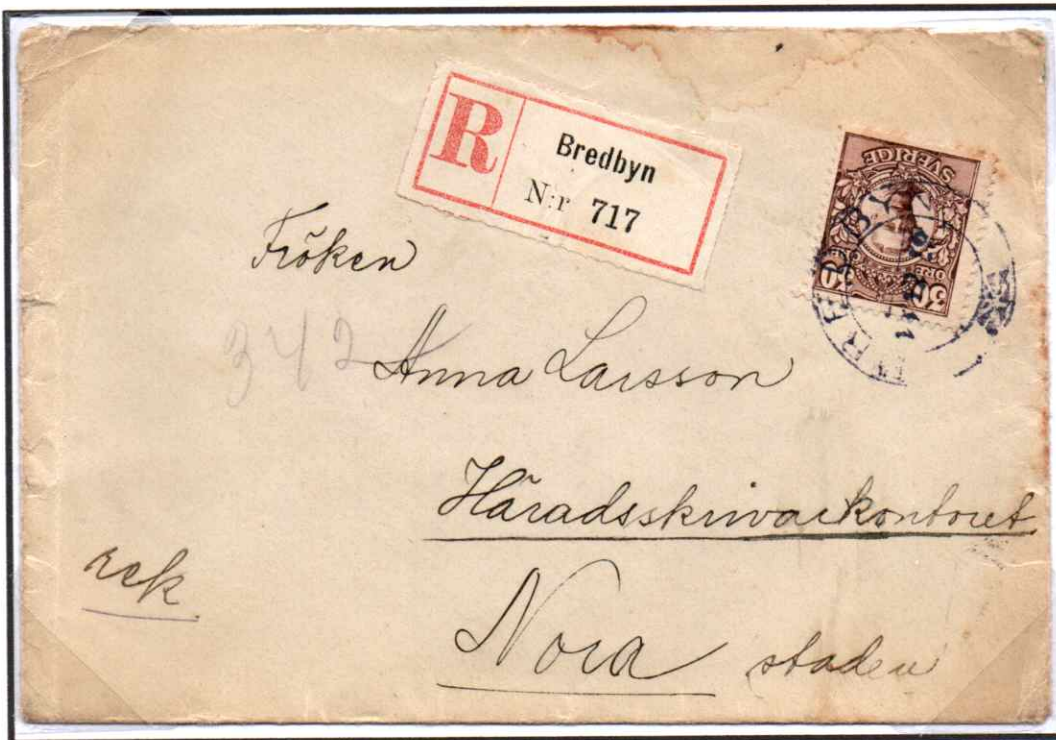 R
Bredbyn
N:r 717
SVERIGE
ÖRE
30
BREDBYN
Fröken
342
Anna Larsson
Häradsskrivarkontoret
rek
Nora staden